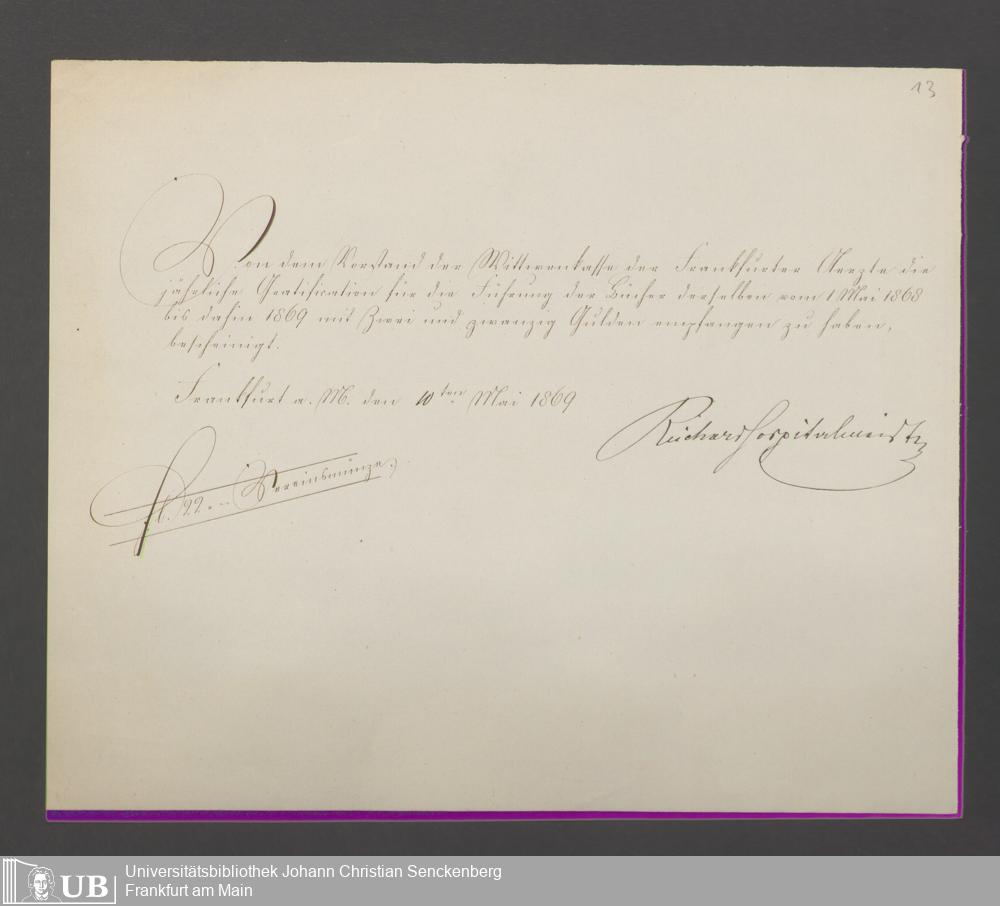 13
Von dem Vorstand der Wittwenkasse der Frankfurter Aerzte die
jährliche Gratification für die Führung der Bücher derselben vom 1 Mai 1868
bis dahin 1869 mit Zwei und zwanzig Gulden empfangen zu haben,
bescheinigt.
Frankfurt a. M. den 10ten Mai 1869
Reichard Hospitalmeister
fl. 22.- (Vereinsmünze.)
UB
Universitätsbibliothek Johann Christian Senckenberg
Frankfurt am Main